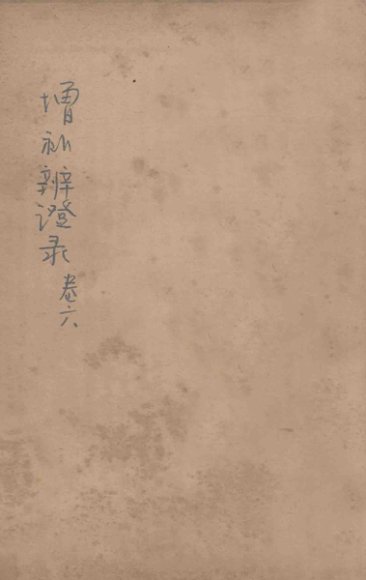 增补辨證录卷六